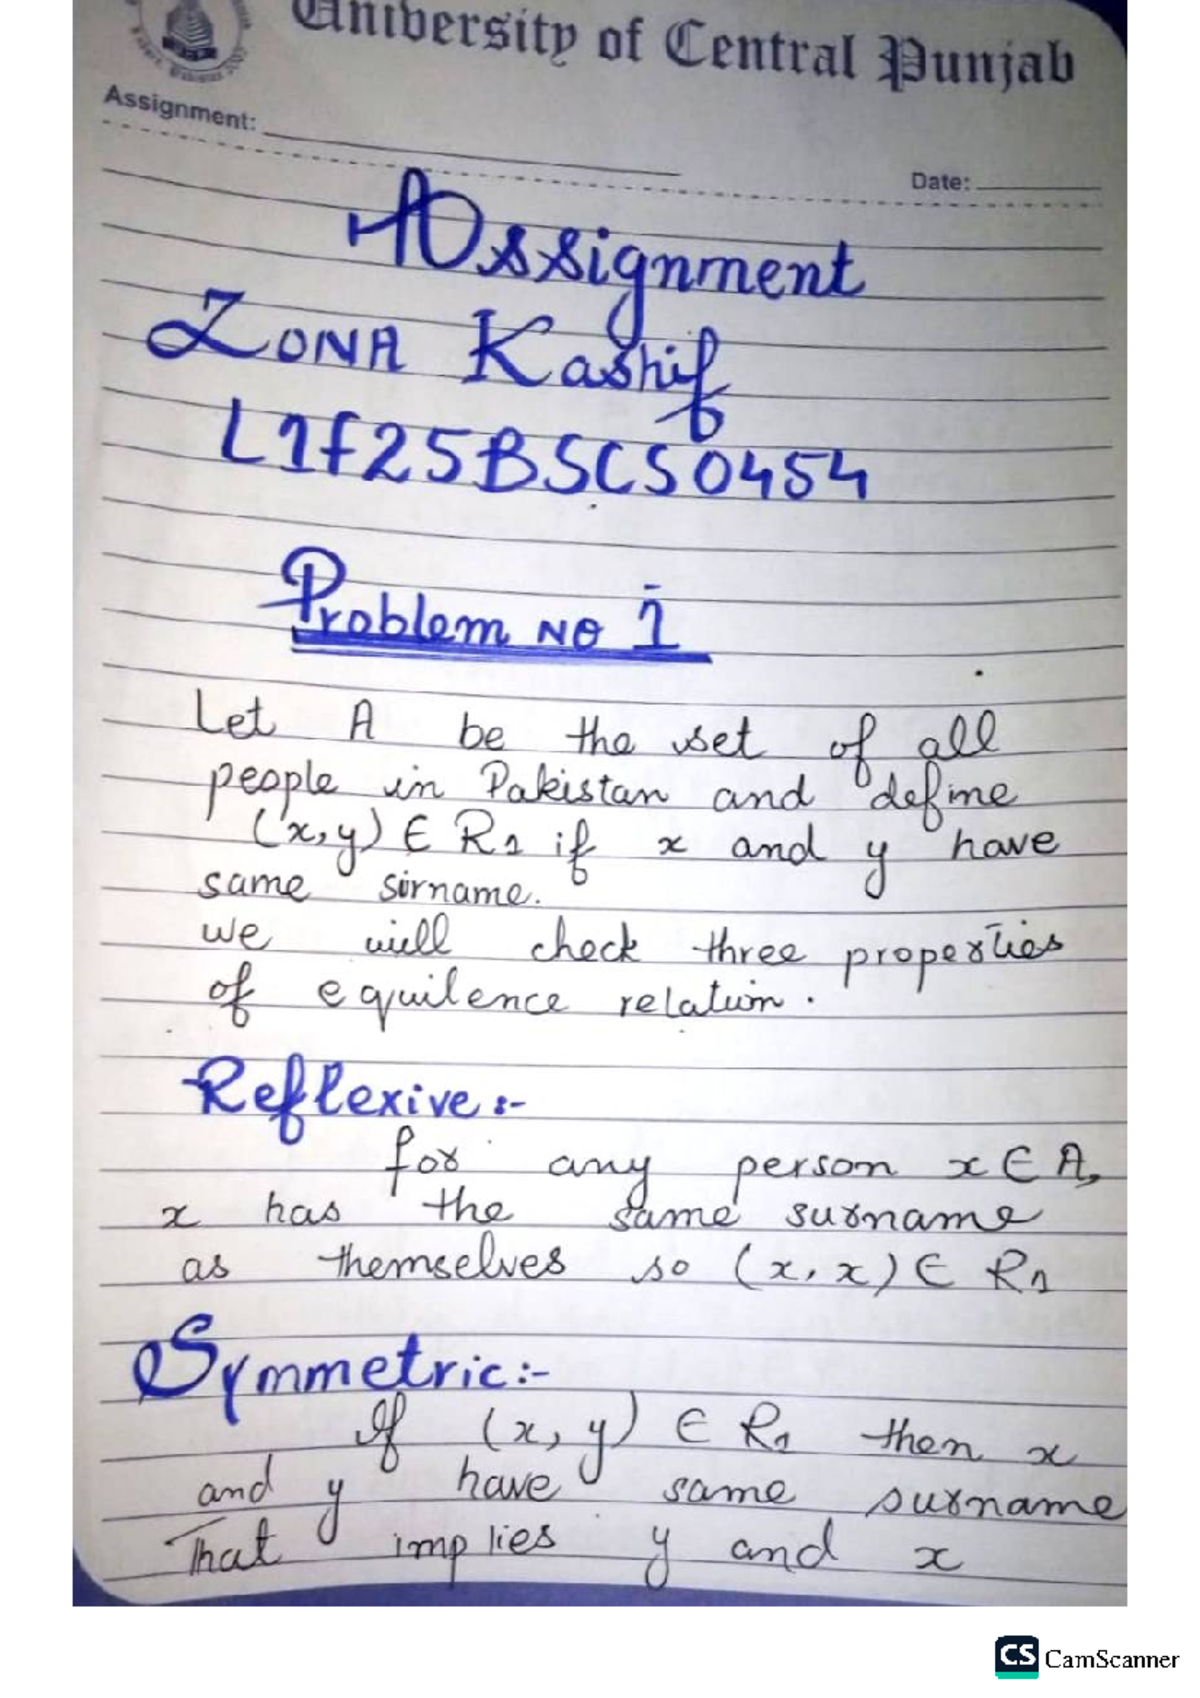 University of Central Punjab
Assignment:
Date:
Assignment
ZONA Kashif
L1f25BSCS0454
Problem NO 1
Let A be the set of all
people in Pakistan and define
(x,y) ∈ R1 if x and y have
same sirname.
we will check three properties
of equilence relation.
Reflexive:-
for any person x ∈ A,
x has the same surname
as themselves so (x,x) ∈ R1
Symmetric:-
If (x,y) ∈ R1 then x
and y have same surname
That implies y and x
CS CamScanner